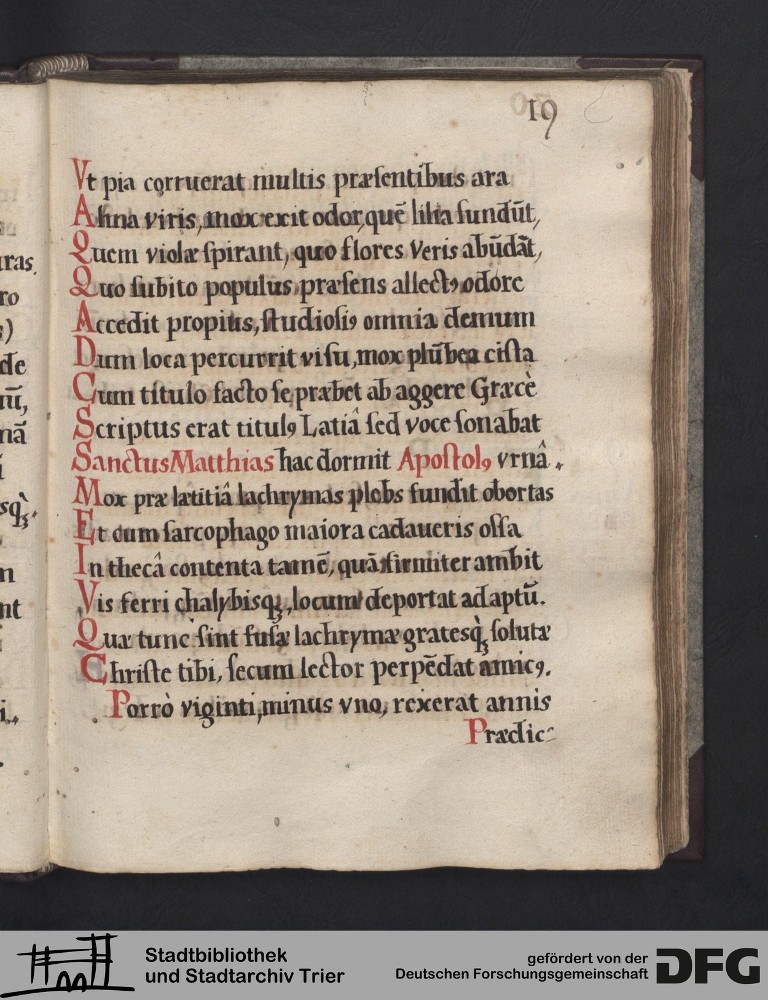 19
Vt pia corruerat multis præsentibus ara
Alma viris, mox exit odor, quē lilia fundūt,
Quem violæ spirant, quo flores veris abūdāt,
Quo subito populus præsens allectꝰ odore
Accedit propius, studiosiꝰ omnia demum
Dum loca percurrit visu, mox plūbea cista
Cum titulo facto se præbet ab aggere Græcè
Scriptus erat titulꝰ Latiâ sed voce sonabat
Sanctus Matthias hac dormit Apostolꝰ vrnâ.
Mox præ lætitiâ lachrymas plebs fundit obortas
Et cum sarcophago maiora cadaueris ossa
In thecâ contenta tamē, quā firmiter ambit
Vis ferri chalybisqꝫ, locum deportat adaptū.
Quæ tunc sint fusæ lachrymæ gratesqꝫ̀ solutæ
Christe tibi, secum lector perpēdat amicꝰ.
Porrò viginti, minus vno, rexerat annis
Prædic:
uras
ro
s)
de
nā
sqꝫ̀.
n
nt
i.
Stadtbibliothek
und Stadtarchiv Trier
gefördert von der
Deutschen Forschungsgemeinschaft
DFG